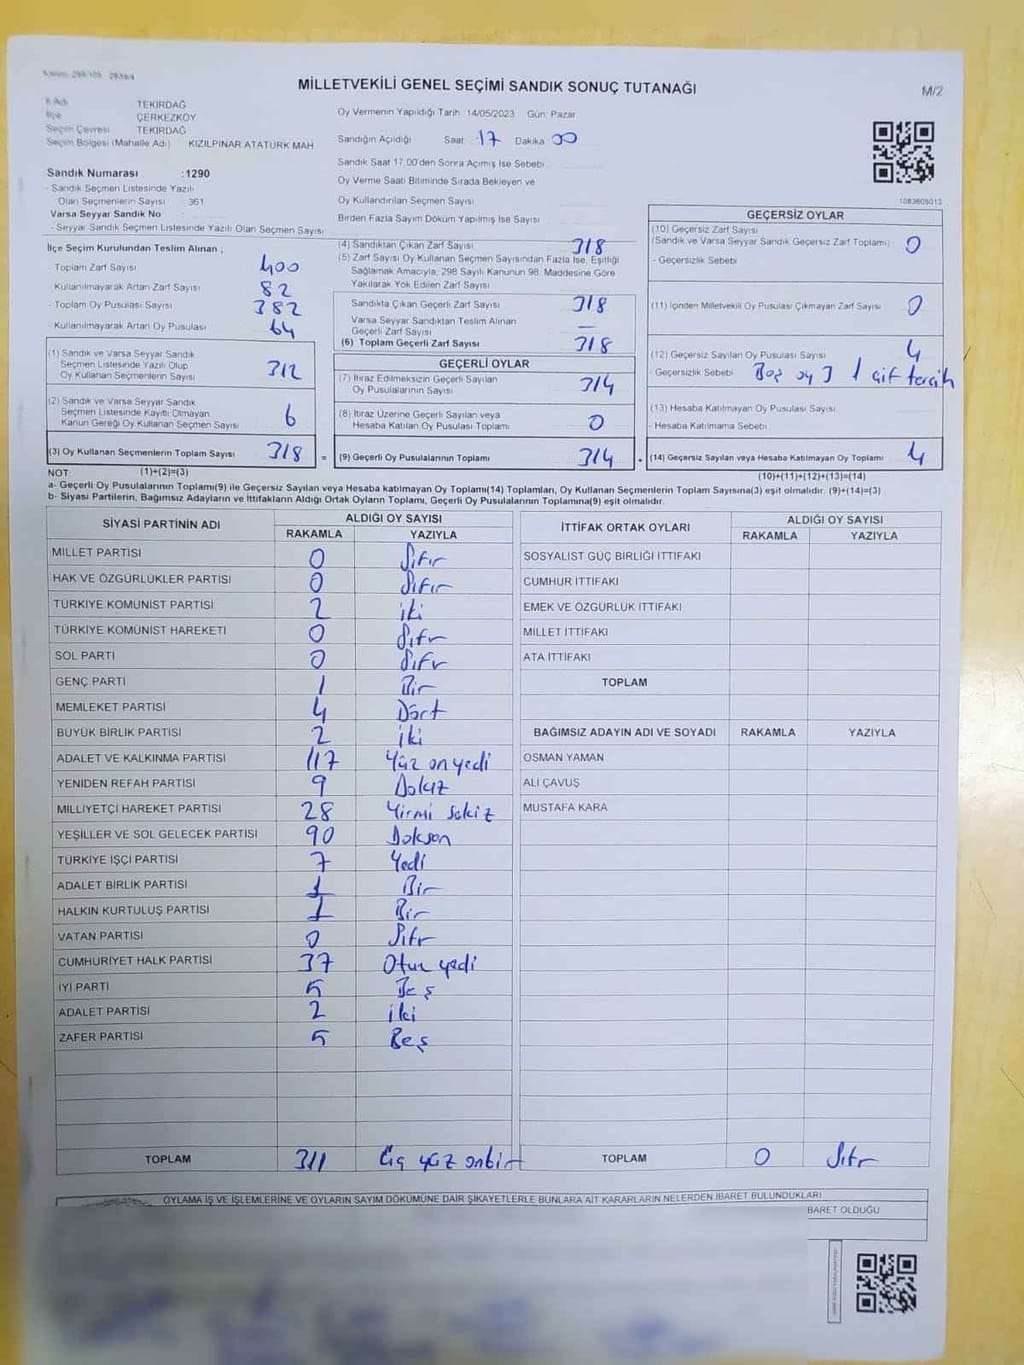 MİLLETVEKİLİ GENEL SEÇİMİ SANDIK SONUÇ TUTANAĞI
M/2
İl Adı TEKİRDAĞ
İlçe ÇERKEZKÖY
Seçim Çevresi TEKİRDAĞ
Seçim Bölgesi (Mahalle Adı) KIZILPINAR ATATÜRK MAH
Oy Vermenin Yapıldığı Tarih :14/05/2023 Gün: Pazar
Sandığın Açıldığı Saat :17 Dakika 00
Sandık Saat 17:00'den Sonra Açılmış İse Sebebi
Oy Verme Saati Bitiminde Sırada Bekleyen ve
Oy Kullandırılan Seçmen Sayısı
Birden Fazla Sayım Döküm Yapılmış İse Sayısı
Sandık Numarası :1290
- Sandık Seçmen Listesinde Yazılı
Olan Seçmenlerin Sayısı : 361
Varsa Seyyar Sandık No
- Seyyar Sandık Seçmen Listesinde Yazılı Olan Seçmen Sayısı
1083605013
İlçe Seçim Kurulundan Teslim Alınan ;
- Toplam Zarf Sayısı 400
- Kullanılmayarak Artan Zarf Sayısı 82
- Toplam Oy Pusulası Sayısı 382
- Kullanılmayarak Artan Oy Pusulası 64
(1) Sandık ve Varsa Seyyar Sandık
Seçmen Listesinde Yazılı Olup
Oy Kullanan Seçmenlerin Sayısı 312
(2) Sandık ve Varsa Seyyar Sandık
Seçmen Listesinde Kayıtlı Olmayan
Kanun Gereği Oy Kullanan Seçmen Sayısı 6
(3) Oy Kullanan Seçmenlerin Toplam Sayısı 318 =
(4) Sandıktan Çıkan Zarf Sayısı 318
(5) Zarf Sayısı Oy Kullanan Seçmen Sayısından Fazla İse, Eşitliği
Sağlamak Amacıyla, 298 Sayılı Kanunun 98. Maddesine Göre
Yakılarak Yok Edilen Zarf Sayısı
Sandıkta Çıkan Geçerli Zarf Sayısı 318
Varsa Seyyar Sandıktan Teslim Alınan
Geçerli Zarf Sayısı —
(6) Toplam Geçerli Zarf Sayısı 318
GEÇERLİ OYLAR
(7) İtiraz Edilmeksizin Geçerli Sayılan
Oy Pusulalarının Sayısı 314
(8) İtiraz Üzerine Geçerli Sayılan veya
Hesaba Katılan Oy Pusulası Toplamı 0
(9) Geçerli Oy Pusulalarının Toplamı 314
GEÇERSİZ OYLAR
(10) Geçersiz Zarf Sayısı
(Sandık ve Varsa Seyyar Sandık Geçersiz Zarf Toplamı) 0
- Geçersizlik Sebebi
(11) İçinden Milletvekili Oy Pusulası Çıkmayan Zarf Sayısı 0
(12) Geçersiz Sayılan Oy Pusulası Sayısı 4
- Geçersizlik Sebebi Boş oy 3 1 çift tercih
(13) Hesaba Katılmayan Oy Pusulası Sayısı
- Hesaba Katılmama Sebebi
(14) Geçersiz Sayılan veya Hesaba Katılmayan Oy Toplamı 4
NOT: (1)+(2)=(3)
(10)+(11)+(12)+(13)=(14)
a- Geçerli Oy Pusulasının Toplamı(9) ile Geçersiz Sayılan veya Hesaba katılmayan Oy Toplamı(14) Toplamları, Oy Kullanan Seçmenlerin Toplam Sayısına(3) eşit olmalıdır. (9)+(14)=(3)
b- Siyasi Partilerin, Bağımsız Adayların ve İttifakların Aldığı Ortak Oyların Toplamı, Geçerli Oy Pusulalarının Toplamına(9) eşit olmalıdır.
SİYASİ PARTİNİN ADI ALDIĞI OY SAYISI
RAKAMLA YAZIYLA
MİLLET PARTİSİ 0 Sıfır
HAK VE ÖZGÜRLÜKLER PARTİSİ 0 Sıfır
TÜRKİYE KOMÜNİST PARTİSİ 2 iki
TÜRKİYE KOMÜNİST HAREKETİ 0 Sıfır
SOL PARTİ 0 Sıfır
GENÇ PARTİ 1 Bir
MEMLEKET PARTİSİ 4 Dört
BÜYÜK BİRLİK PARTİSİ 2 iki
ADALET VE KALKINMA PARTİSİ 117 Yüz on yedi
YENİDEN REFAH PARTİSİ 9 Dokuz
MİLLİYETÇİ HAREKET PARTİSİ 28 Yirmi sekiz
YEŞİLLER VE SOL GELECEK PARTİSİ 90 Doksan
TÜRKİYE İŞÇİ PARTİSİ 7 Yedi
ADALET BİRLİK PARTİSİ 1 Bir
HALKIN KURTULUŞ PARTİSİ 1 Bir
VATAN PARTİSİ 0 Sıfır
CUMHURİYET HALK PARTİSİ 37 Otuz yedi
İYİ PARTİ 5 Beş
ADALET PARTİSİ 2 iki
ZAFER PARTİSİ 5 Beş
TOPLAM 311 Üç yüz onbir
İTTİFAK ORTAK OYLARI ALDIĞI OY SAYISI
RAKAMLA YAZIYLA
SOSYALİST GÜÇ BİRLİĞİ İTTİFAKI
CUMHUR İTTİFAKI
EMEK VE ÖZGÜRLÜK İTTİFAKI
MİLLET İTTİFAKI
ATA İTTİFAKI
TOPLAM
BAĞIMSIZ ADAYIN ADI VE SOYADI RAKAMLA YAZIYLA
OSMAN YAMAN
ALİ ÇAVUŞ
MUSTAFA KARA
TOPLAM 0 Sıfır
OYLAMA İŞ VE İŞLEMLERİNE VE OYLARIN SAYIM DÖKÜMÜNE DAİR ŞİKAYETLERLE BUNLARA AİT KARARLARIN NELERDEN İBARET BULUNDUKLARI
İBARET OLDUĞU